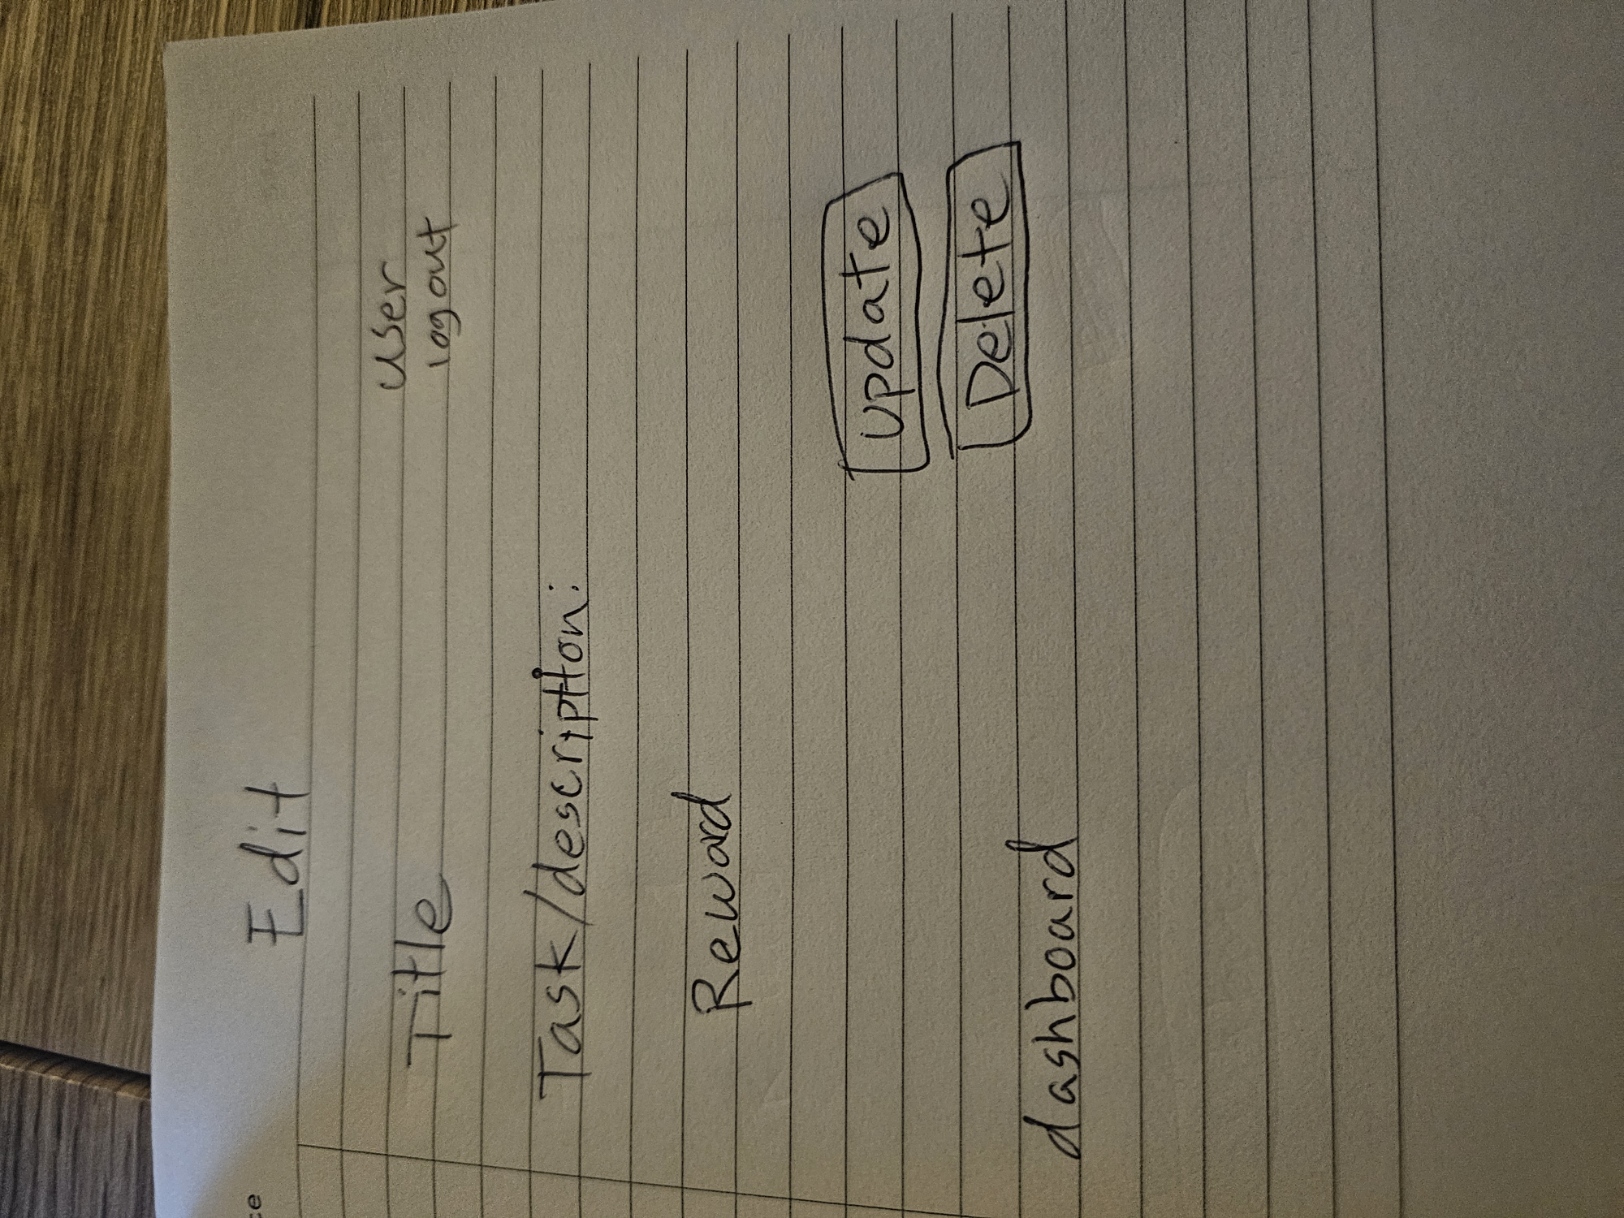 Edit
Title
User
logout
Task/description:
Reward
update
Delete
dashboard